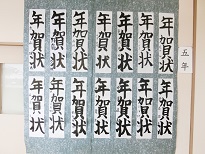 年賀状 年賀状 年賀状 年賀状 年賀状 年賀状 年賀状
年賀状 年賀状 年賀状 年賀状 年賀状 年賀状 年賀状
五年